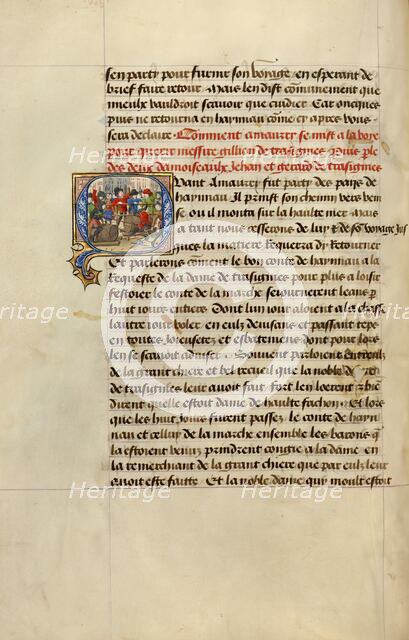 sen party pour furnir son voyage en esperant de
brief faire retour Mais len dist communement que
mieulx vauldroit scavoir que cuidier Car oncques
puis ne retourna en haynnau come cy apres vous
sera declaire Comment amaurry se mist a la voye
pour querir messire gillion de trasignies Puis ple
des deux damoiseaulx Jehan et gerard de trasignies
Quant Amaury fut party des pays de
haynnau Il prinst son chemin vers
se ou il monta sur la haulte mer Mais
a tant nous cesserons de luy & de so voyage Jus
ques la matiere Requerra dy Retourner
Et parlerons coment le bon conte de haynnau a le
Requeste de la dame de trasignies pour plus a loisir
festoier le conte de la marche seiournerent leans p
huit iours entiers Dont lun iour aloient a la chasse
lautre iour voler en eulx devisant et passant teps
en toutes Joieusetez et esbatemens dont pour lors
len se scavoit adviser Souvent parloient entreulx
de la grant chiere et bel recueil que la noble
de trasignies leur avoit fait fort len loerent & bie
dirent quelle estoit dame de haulte fachon Et lors
que les huit Jours furent passez le conte de hayn
nau et celluy de la marche ensemble les barons q
la estoient venus prindrent congie a la dame en
la remerchiant de la grant chiere que par eulx leur
avoit este faitte Et la noble dame qui moult estoit
Heritage
Heritage
Heritage
Heritage
Heritage
Heritage